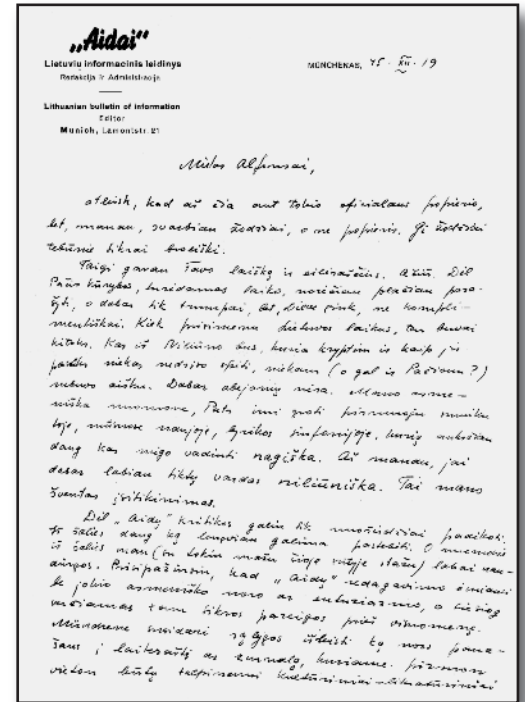 „Aidai“
Lietuvių informacinis leidinys
Redakcija ir Administracija
Lithuanian bulletin of information
Editor
Munich, Lamontstr. 21
MÜNCHENAS, 45 · XII · 19
Mielas Alfonsai,
atleisk, kad aš čia ant tokio oficialaus popierio,
bet, manau, svarbiau žodžiai, o ne popieris. Gi žodžiai
tebūnie tikrai broliški.
Taigi gavau Tavo laišką ir eilėraščius. Ačiū. Dėl
Pačio kūrybos, turėdamas laiko, norėčiau plačiau para-
šyti, o dabar tik trumpai, bet, Dieve gink, ne kompli-
mentiškai. Kiek prisimenu Lietuvos laikus, tai buvai
kitoks. Kas iš Niliūno bus, kuria kryptim ir kaip jis
niekas nedrįso spėti, niekam (o gal ir Pačiam?)
nebuvo aišku. Dabar abejonių nėra. Mano asme-
niška nuomone, Pats imi groti pirmuoju smuiku
toje, mūsuose naujoje, lyrikos simfonijoje, kurią anksčiau
daug kas mėgo vadinti nagiška. Aš manau, jai
dabar labiau tiktų vardas niliūniška. Tai mano
šventas įsitikinimas.
Dėl „Aidų“ kritikos galiu tik nuoširdžiai padėkoti.
Iš šalies daug ką lengviau galima pastebėti. O nuomonės
iš šalies man (su tokiu mažu čioje rūšyje stažu) labai nau-
dingos. Prisipažinsiu, kad „Aidų“ redagavimo ėmiausi
be jokio asmeniško noro ar entuziazmo, o tiesiog
versdamas tam tikros pareigos prieš visuomenę.
Miunchene susidarė sąlygos išleisti ką nors pana-
šaus į laikraštį ar žurnalą, kuriame pirmon
vieton būtų talpinami kultūriniai-literatūriniai